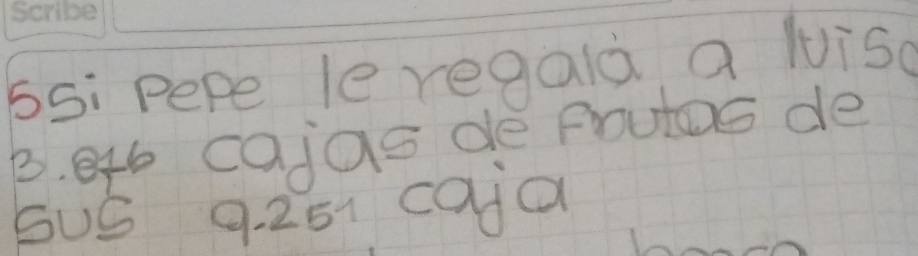 Scribe
5 Si pepe le regaló a luisa
cajas de frutas de
sus 9.251 caja